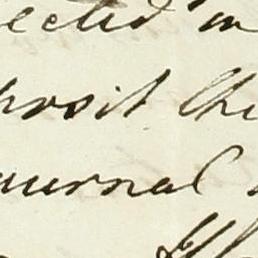 ected in
posit the
ournal